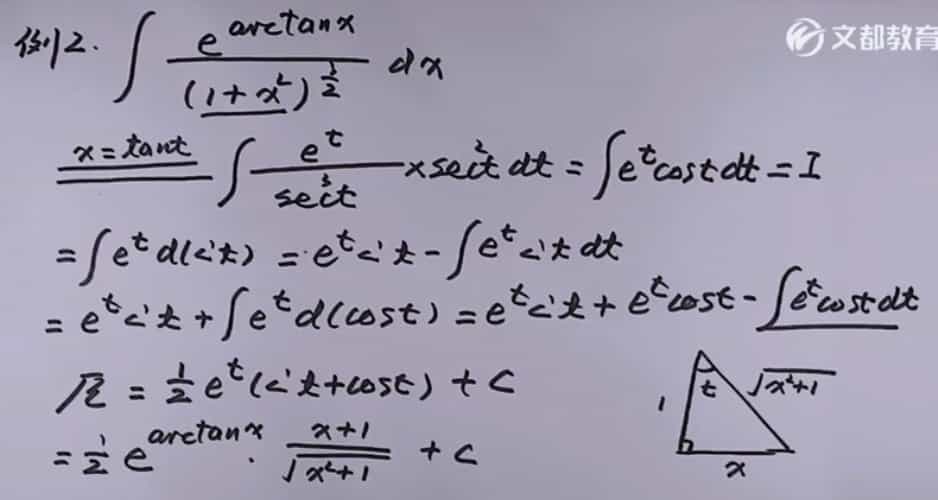 文都教育
例2. ∫ e^{arctanx} / (1+x²)^{3/2} dx
x=tant ∫ e^t / sec³t × sec²t dt = ∫e^t cost dt = I
= ∫e^t d(sin t) = e^t sin t - ∫e^t sin t dt
= e^t sin t + ∫e^t d(cost) = e^t sin t + e^t cost - ∫e^t cost dt
原 = 1/2 e^t (sin t + cost) + C
= 1/2 e^{arctanx} · (x+1) / √(x²+1) + C
1 t √(x²+1)
x